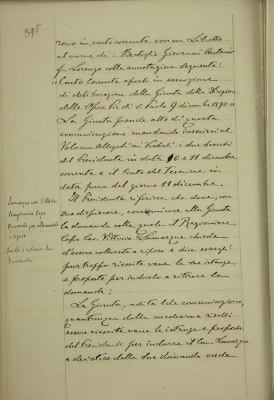 395
rono in conto corrente con un Libretto
al nome di: Battaglia Giovanni Antonio
fu Lorenzo colla annotazione seguente:
"Conto Corrente aperto in esecuzione
di deliberazione della Giunta della Direzione
delle Opere Pie di S. Paolo 9 dicembre 1890"
La Giunta prende atto di questa
comunicazione mandando inserirsi al
Volume Allegati ai Verbali i due decreti
del Presidente in data 10 e 11 dicembre
corrente e il Conto del Tesoriere in
data pure del giorno 11 dicembre.
Il Presidente riferisce che deve, con
suo dispiacere, comunicare alla Giunta
la domanda colla quale il Ragioniere
Capo Cav. Vittorio chiede
d'essere collocato a riposo e dice essergli
purtroppo riescite vane le sue istanze
e proposte per indurlo a ritirare la
domanda;
La Giunta, udita tale comunicazione,
quantunque dalla medesima risulti
essere riescite vane le istanze e proposte
del Presidente per indurre il Cav.
a desistere dalla sua domanda crede
Ragioniere Capo
Domanda per collocamento
a riposo
domanda